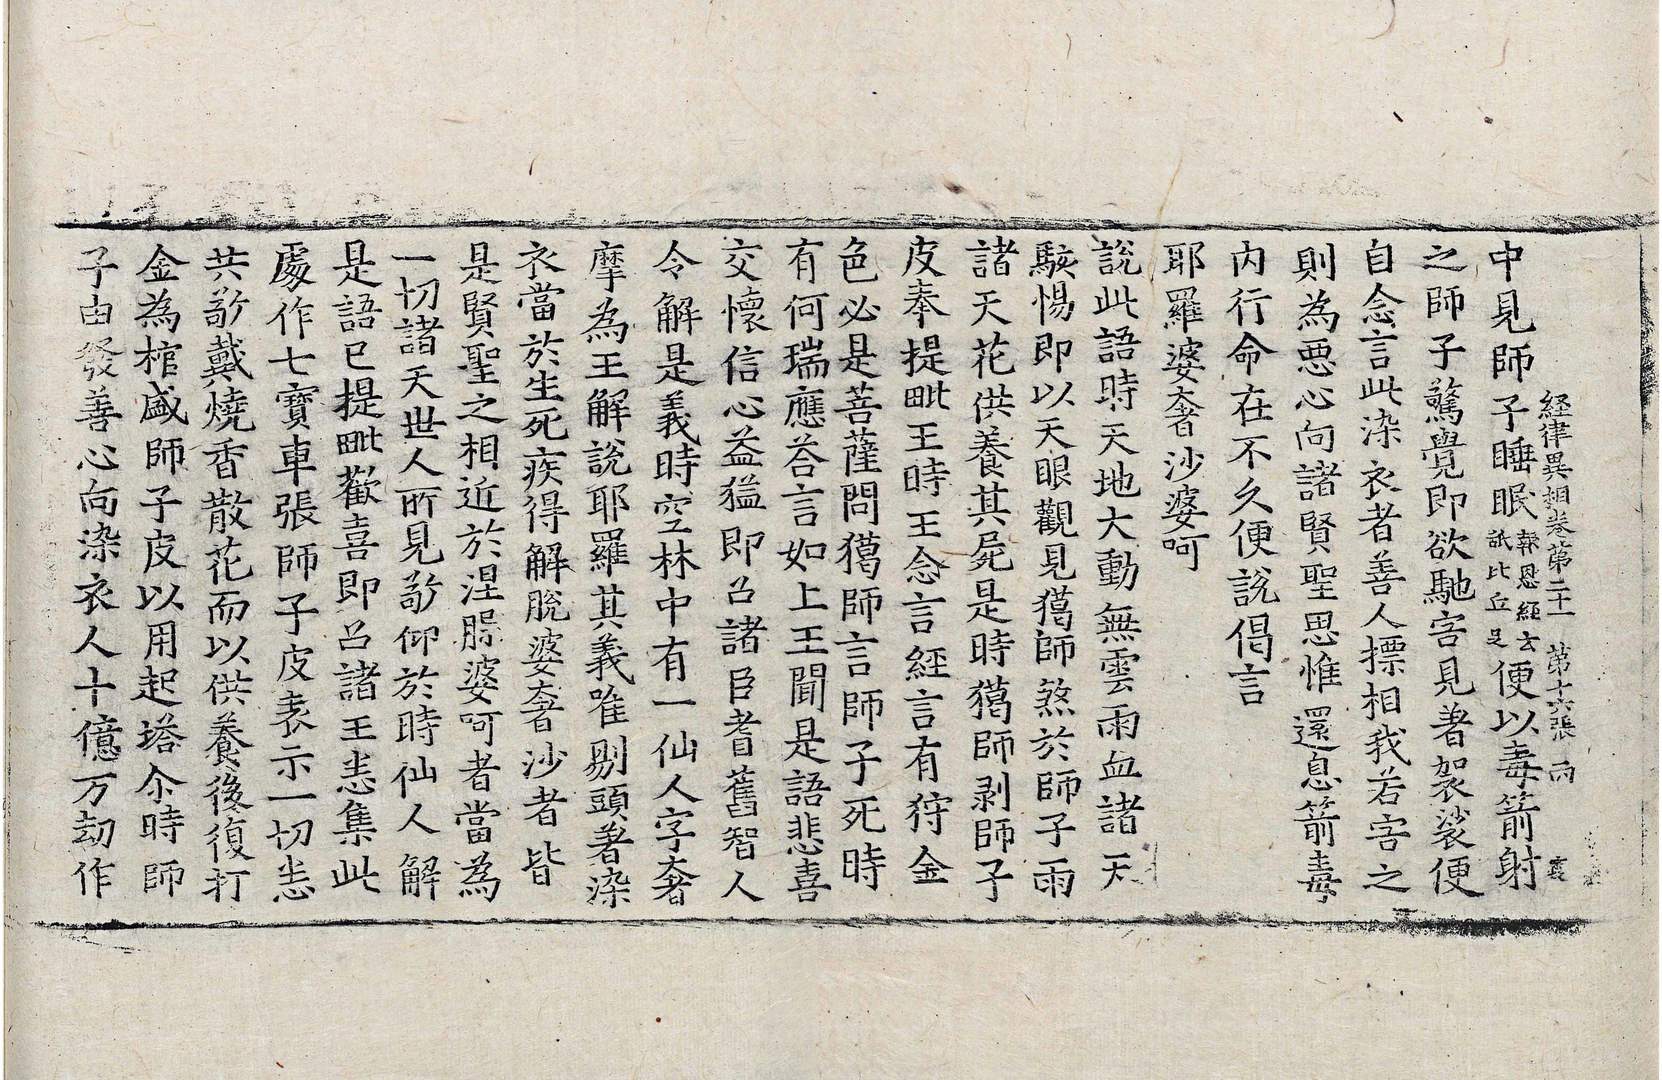 経律異相卷第二十一　第十六張　雨
中見師子睡眠報恩經云詆比丘是便以毒箭射
之師子驚覺即欲馳害見著袈裟便
自念言此染衣者善人摽相我若害之
則為惡心向諸賢聖思惟還息箭毒
內行命在不久便說偈言
耶羅婆奢沙婆呵
說此語時天地大動無雲雨血諸天
駭惕即以天眼觀見獦師煞於師子雨
諸天花供養其屍是時獦師剥師子
皮奉提毗王時王念言經言有狩金
色必是菩薩問獦師言師子死時
有何瑞應荅言如上王聞是語悲喜
交懷信心益猛即召諸臣耆舊智人
令解是義時空林中有一仙人字奢
摩為王解說耶羅其義唯剔頭著染
衣當於生死疾得解脫婆奢沙者皆
是賢聖之相近於涅槃婆呵者當為
一切諸天世人所見敬仰於時仙人解
是語已提毗歡喜即召諸王悉集此
處作七寶車張師子皮表示一切悉
共敬戴燒香散花而以供養後復打
金為棺盛師子皮以用起塔尒時師
子由發善心向染衣人十億万劫作